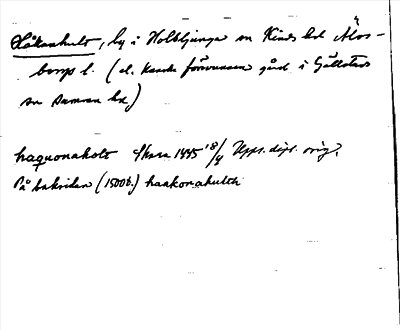 Håkanhult, by i Holsljunga sn Kinds hd Älvs-
borgs l. (el. kanske försvunnen gård i Gällstads
sn samma hd)
haquonaholt Skara 1445 18/4 Upps. dipl. orig.
På baksidan (1500t.) haakonahulth